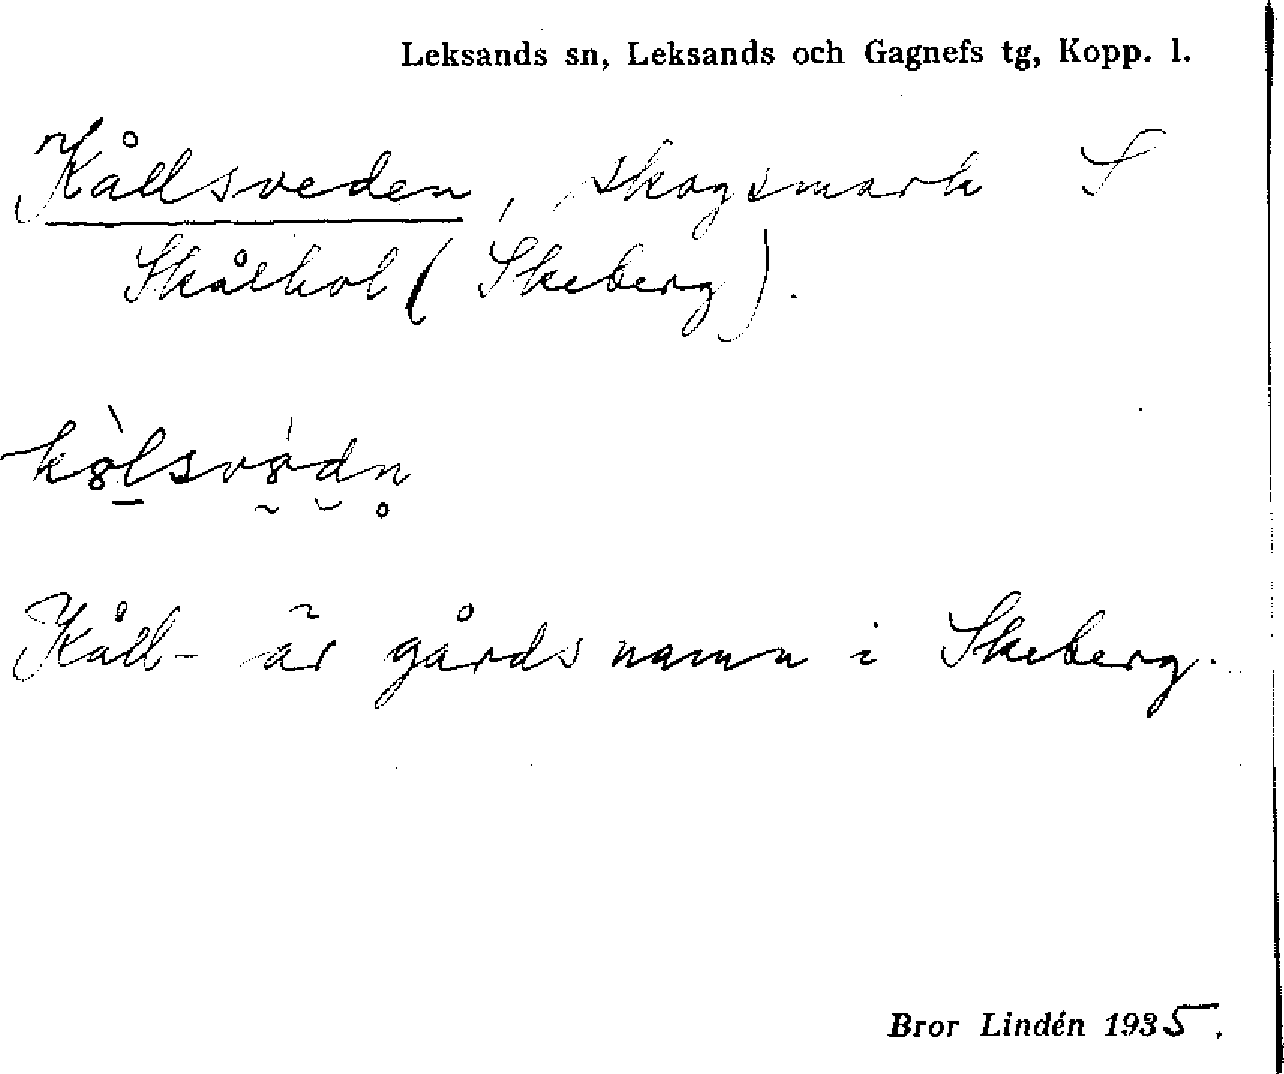 Leksands sn, Leksands och Gagnefs tg, Kopp. l.
Kållsveden, skogsmark S
Skålhol (Skeberg).
Kåll- är gårdsnamn i Skeberg.
Bror Lindén 1935.